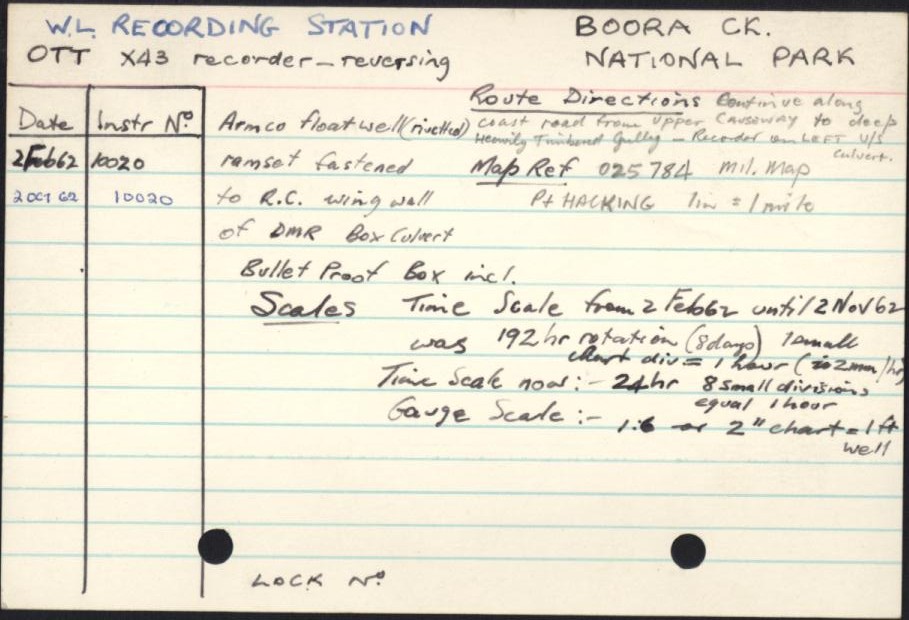 W.L. RECORDING STATION
BOORA CK.
OTT X43 recorder - reversing
NATIONAL PARK
Route Directions Continue along
Date Instr No.
Armco float well (rivetted)
coast road from upper Causeway to deep
Heavily Timbered Gully - Recorder on LEFT U/S
culvert.
2 Feb 62 10020
ramset fastened
Map Ref 025784 mil. Map
2 OCT 62 10020
to R.C. wing wall
Pt HACKING 1in = 1 mile
of DMR Box Culvert
Bullet Proof Box incl.
Scales Time Scale from 2 Feb 62 until 2 Nov 62
was 192 hr rotation (8 days) 1 small
chart div = 1 hour (2mm/hr)
Time Scale now :- 24hr 8 small divisions
equal 1 hour
Gauge Scale :- 1:6 or 2" chart = 1 ft
well
LOCK No.